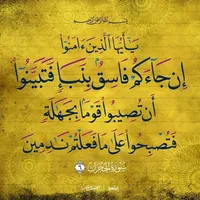 يَٰٓأَيُّهَا ٱلَّذِينَ ءَامَنُوٓا۟
إِن جَآءَكُمْ فَاسِقٌۢ بِنَبَإٍ فَتَبَيَّنُوٓا۟
أَن تُصِيبُوا۟ قَوْمًۢا بِجَهَٰلَةٍ
فَتُصْبِحُوا۟ عَلَىٰ مَا فَعَلْتُمْ نَٰدِمِينَ
سورة الحجرات ٦